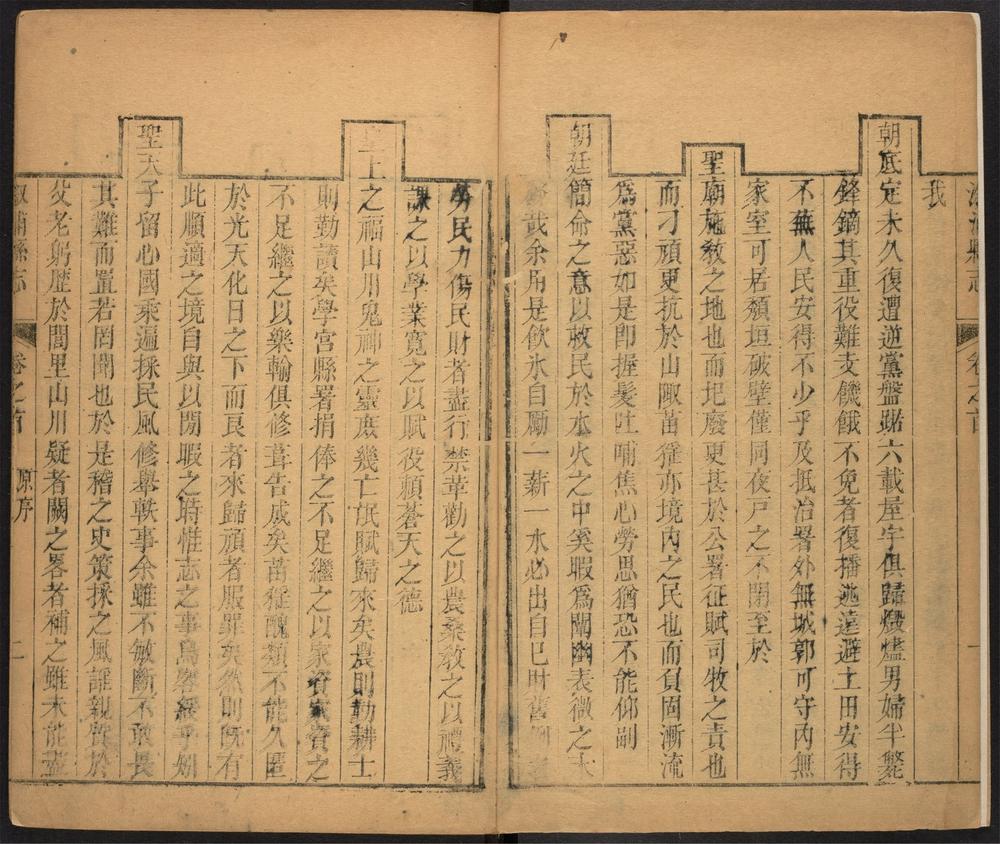 縣志 卷之首
我
朝底定未久復遭逆黨盤踞六載屋宇俱歸燬燼男婦半斃
鋒鏑其重役難支饑餓不免者復播逃遠避土田安得
不蕪人民安得不少乎及抵治署外無城郭可守內無
家室可居頹垣破壁僅同夜戸之不閉至於
聖廟施敎之地也而圮廢更甚於公署征賦司牧之責也
而刁頑更抗於山陬苗猺亦境內之民也而負固漸流
爲黨惡如是卽握髮吐哺焦心勞思猶恐不能仰副
朝廷簡命之意以救民於水火之中奚暇爲闡幽表微之大
哉余用是飮氷自勵一薪一水必出自已財舊
勞民力傷民財者盡行禁革勸之以農桑敎之以禮義
課之以學業寬之以賦役賴蒼天之德
皇上之福山川鬼神之靈庶幾亡氓賦歸來矣農則勤耕士
則勤讀矣學宮縣署捐俸之不足繼之以家資家資之
不足繼之以樂輸俱修葺告成矣苗猺醜類不能久匿
於光天化日之下而良者來歸頑者服罪矣然則旣有
此順適之境自與以閒暇之時惟志之事烏容緩乎矧
聖天子留心國乘遍採民風修舉軼事余雖不敏斷不敢畏
其難而置若罔聞也於是稽之史策採之風謠親質於
父老躬歷於閭里山川疑者闕之畧者補之雖未能盡
漵浦縣志 卷之首 原序 二